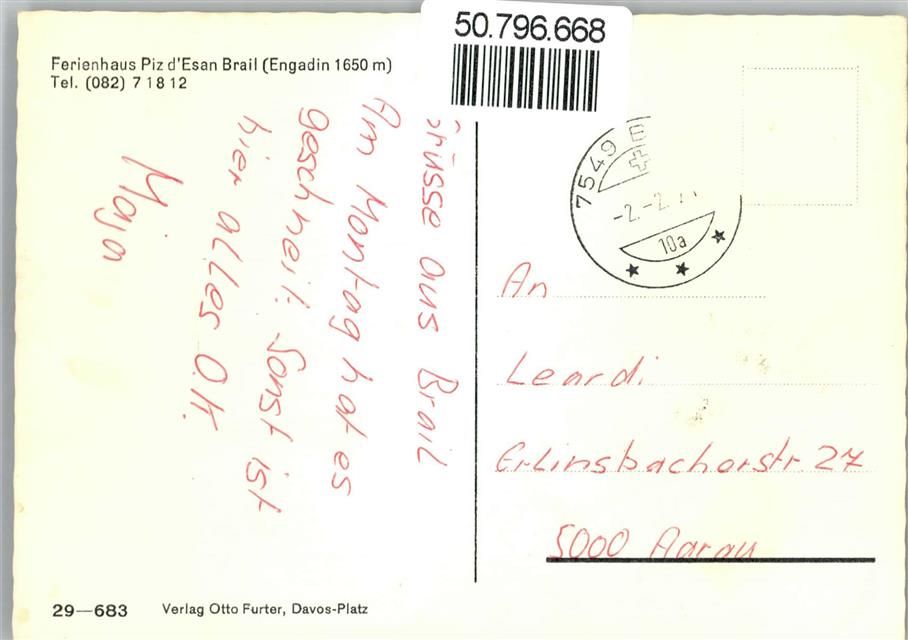 50.796.668
Ferienhaus Piz d'Esan Brail (Engadin 1650 m)
Tel. (082) 7 18 12
Grüsse aus Brail
Am Montag hat es
geschneit. Sonst ist
hier alles O.K.
Maja
7549
-2.-2.
10a
An
Leardi
Erlinsbacherstr. 27
5000 Aarau
29—683
Verlag Otto Furter, Davos-Platz